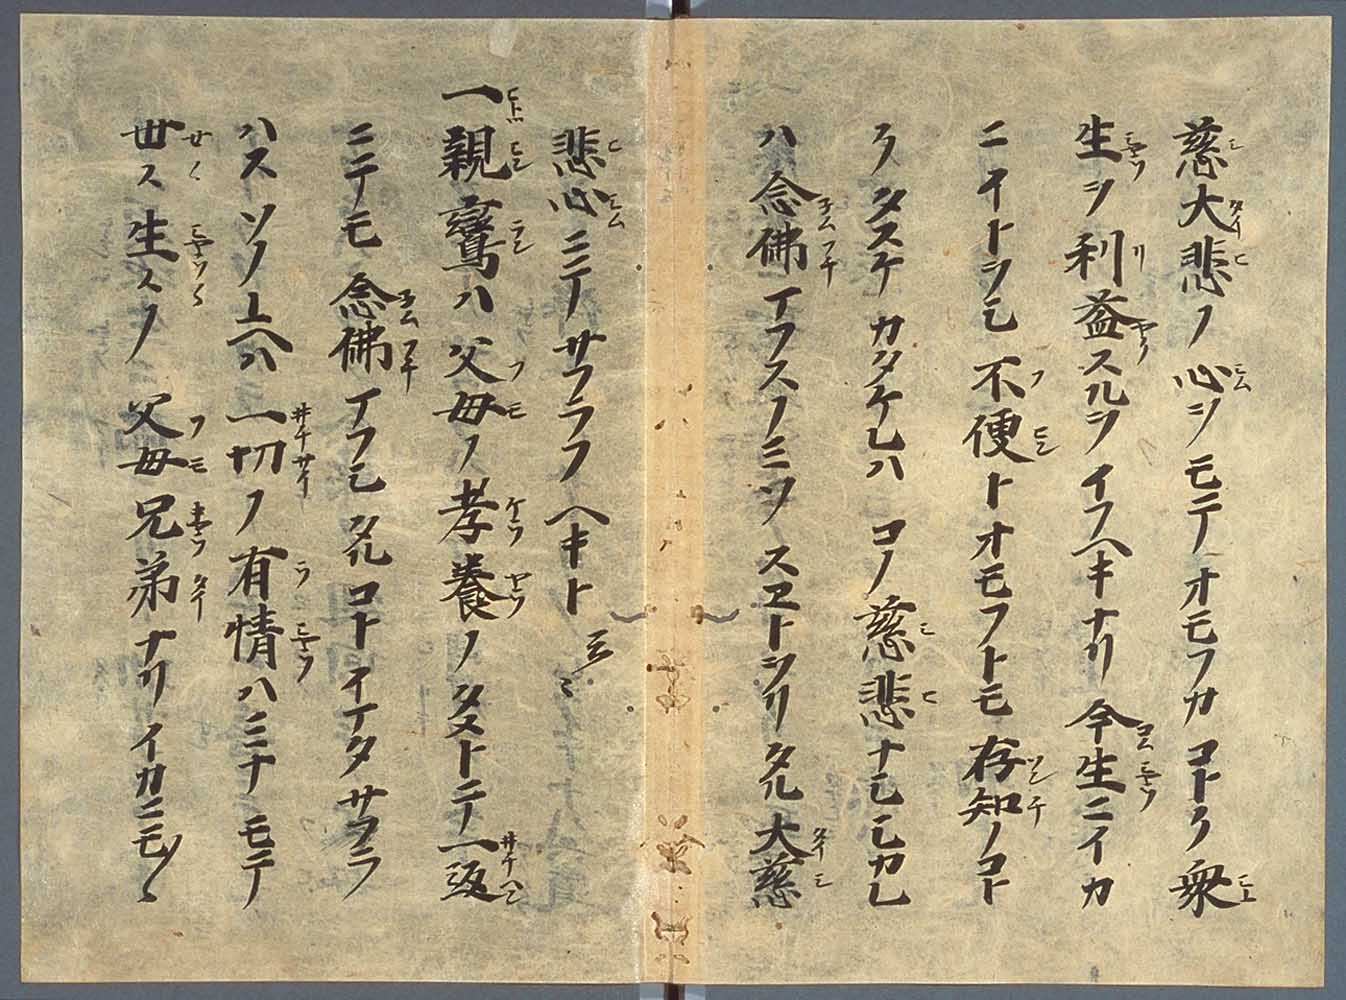 慈大悲ノ心ヲモテオモフカコトク衆
生ヲ利益スルヲイフヘキナリ今生ニイカ
ニイトヲシ不便トオモフトモ存知ノコト
クタスケカタケレハコノ慈悲ナシシカレ
ハ念佛マフスノミソスヱトヲリタル大慈
悲心ニテサフラフヘキト云々
一親鸞ハ父母ノ孝養ノタメトテ一返
ニテモ念佛マフシタルコトイマタサフラ
ハスソノユヘハ一切ノ有情ハミナモテ
世々生々ノ父母兄弟ナリイカニモ〱